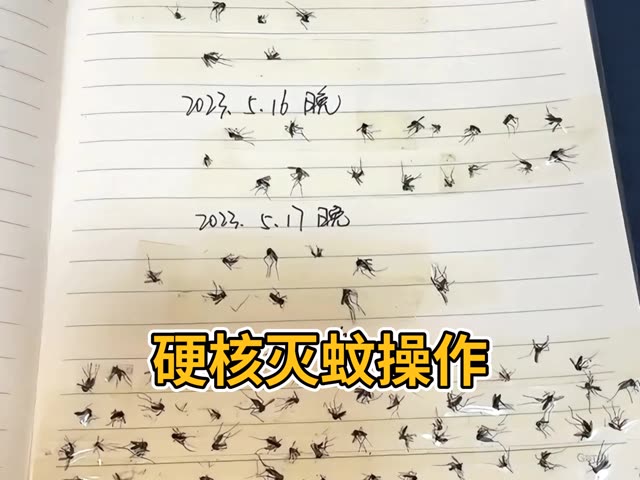 2023.5.16 晚
2023.5.17 晚
硬核灭蚊操作